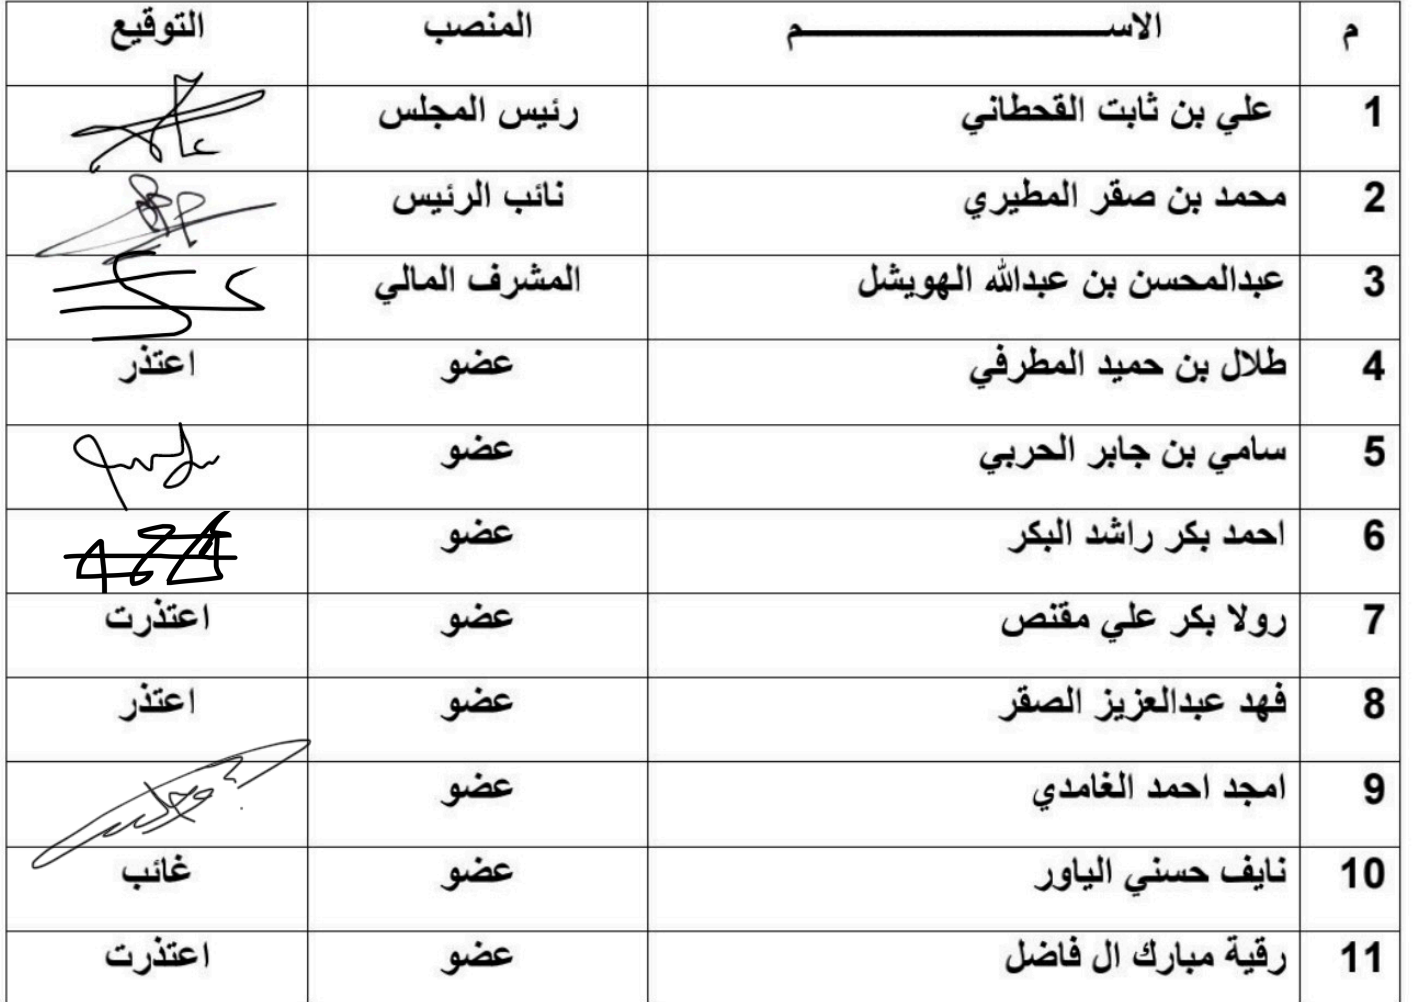 م الاســـــــــــــم المنصب التوقيع
1 علي بن ثابت القحطاني رئيس المجلس
2 محمد بن صقر المطيري نائب الرئيس
3 عبدالمحسن بن عبدالله الهويشل المشرف المالي
4 طلال بن حميد المطرفي عضو اعتذر
5 سامي بن جابر الحربي عضو
6 احمد بكر راشد البكر عضو
7 رولا بكر علي مقنص عضو اعتذرت
8 فهد عبدالعزيز الصقر عضو اعتذر
9 امجد احمد الغامدي عضو
10 نايف حسني الياور عضو غائب
11 رقية مبارك ال فاضل عضو اعتذرت